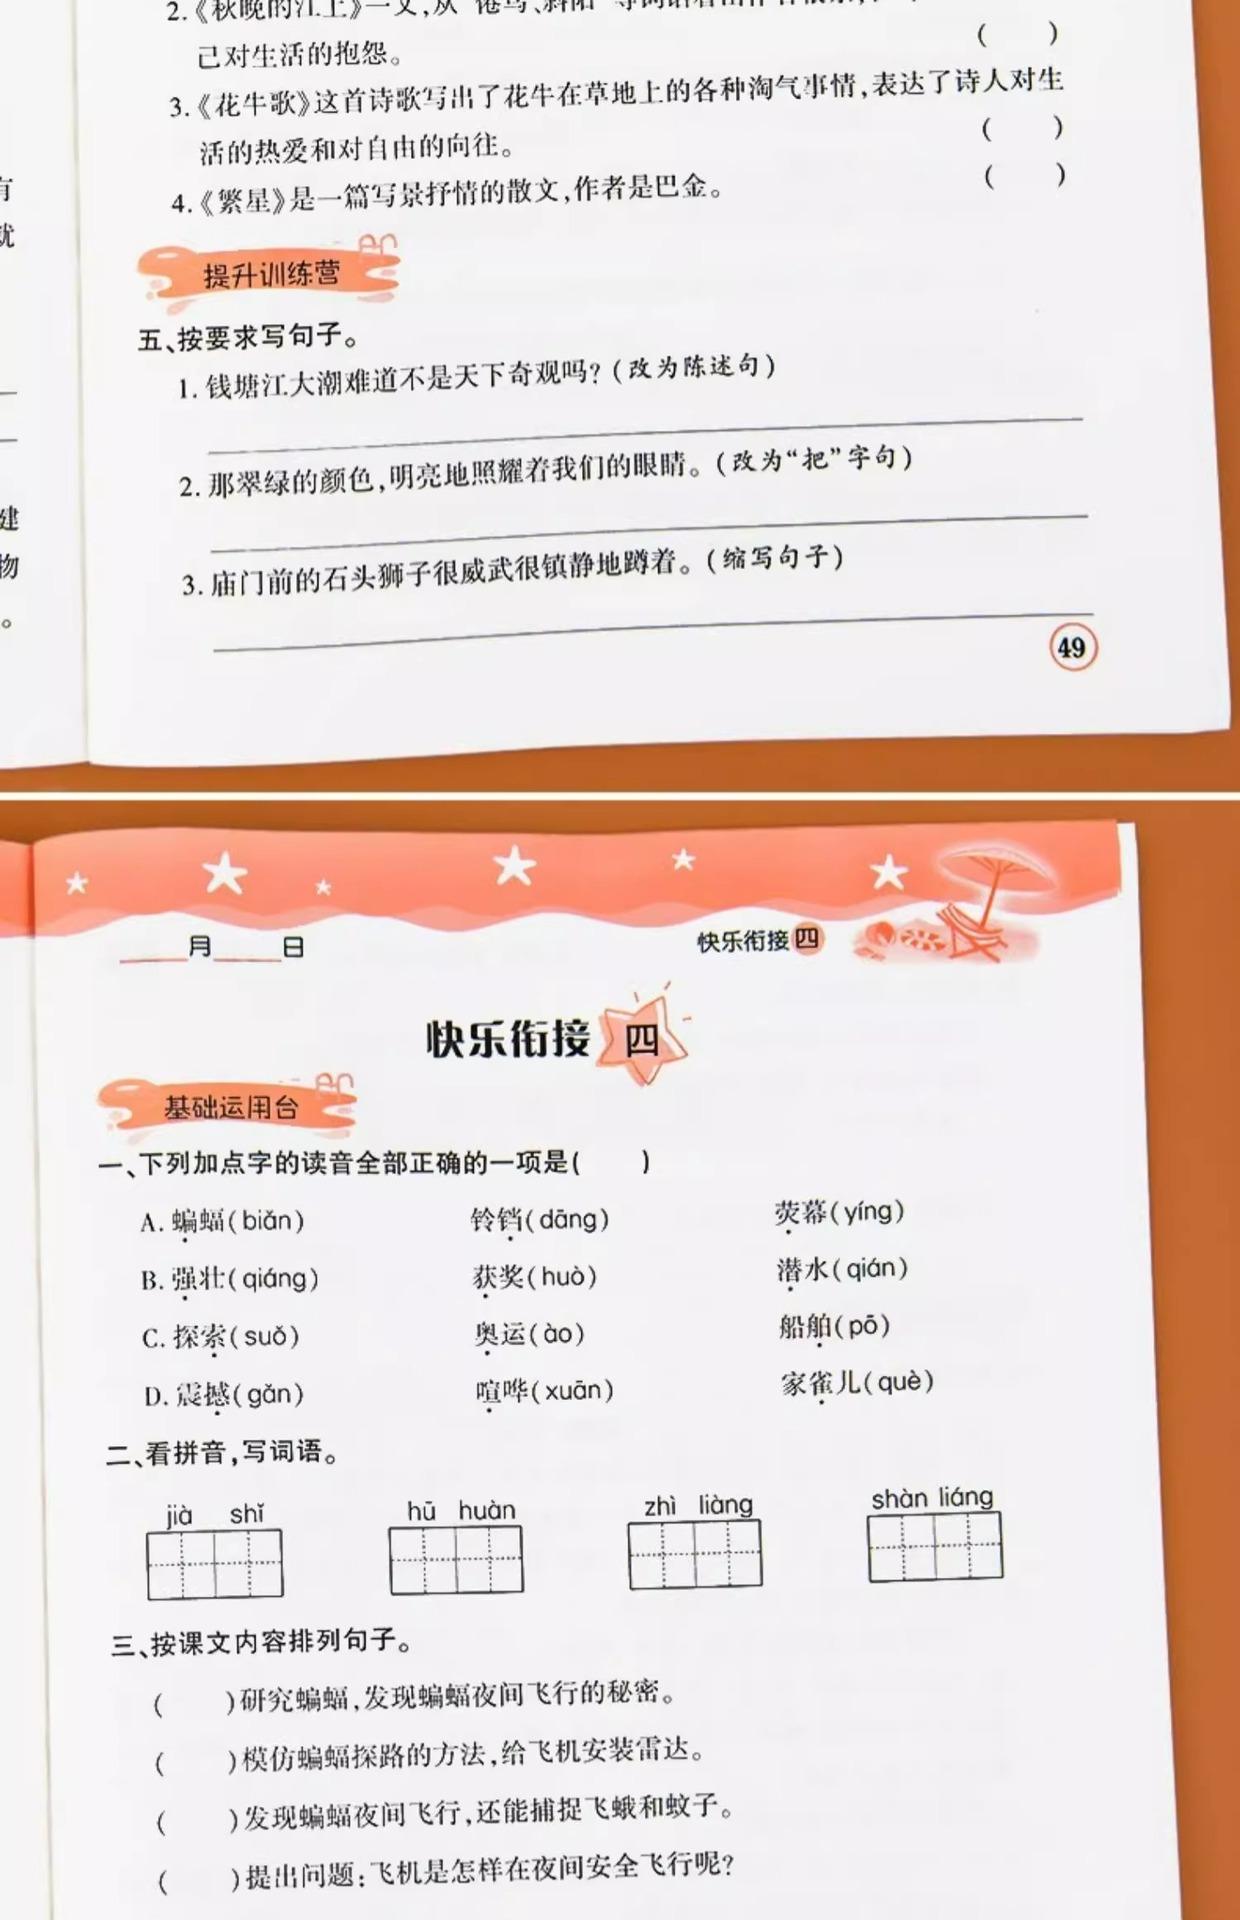 2.《秋晚的江上》一文,从“倦鸟、斜阳”等词语看出作者
己对生活的抱怨。 ( )
3.《花牛歌》这首诗歌写出了花牛在草地上的各种淘气事情,表达了诗人对生
活的热爱和对自由的向往。 ( )
4.《繁星》是一篇写景抒情的散文,作者是巴金。 ( )
有
就
建
物
。
提升训练营
五、按要求写句子。
1. 钱塘江大潮难道不是天下奇观吗?(改为陈述句)
2. 那翠绿的颜色,明亮地照耀着我们的眼睛。(改为“把”字句)
3. 庙门前的石头狮子很威武很镇静地蹲着。(缩写句子)
49
月 日 快乐衔接 四
快乐衔接 四
基础运用台
一、下列加点字的读音全部正确的一项是( )
A. 蝙蝠(biǎn) 铃铛(dāng) 荧幕(yíng)
B. 强壮(qiáng) 获奖(huò) 潜水(qián)
C. 探索(suǒ) 奥运(ào) 船舶(pō)
D. 震撼(gǎn) 喧哗(xuān) 家雀儿(què)
二、看拼音,写词语。
jià shǐ hū huàn zhì liàng shàn liáng
三、按课文内容排列句子。
( )研究蝙蝠,发现蝙蝠夜间飞行的秘密。
( )模仿蝙蝠探路的方法,给飞机安装雷达。
( )发现蝙蝠夜间飞行,还能捕捉飞蛾和蚊子。
( )提出问题:飞机是怎样在夜间安全飞行呢?